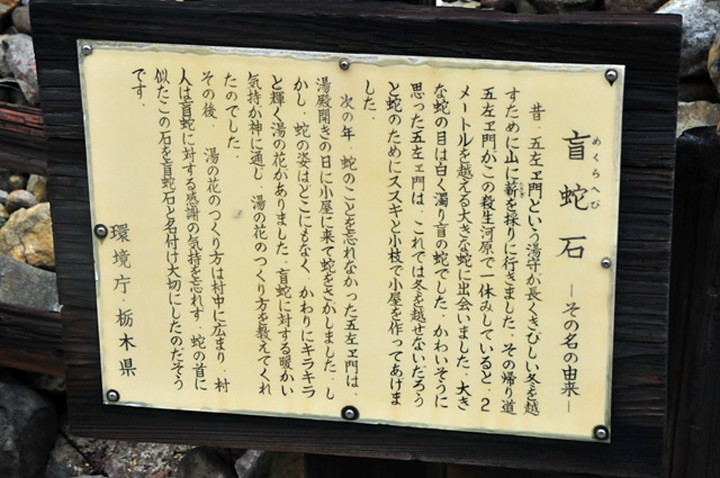 盲蛇石 ―その名の由来―
めくらへび
昔、五左ヱ門という湯守が長くきびしい冬を越
すために山に薪を採りに行きました。その帰り道
たきぎ
五左ヱ門がこの殺生河原で一休みしていると、2
メートルを越える大きな蛇に出会いました。大き
な蛇の目は白く濁り盲の蛇でした。かわいそうに
思った五左ヱ門は、これでは冬を越せないだろう
と蛇のためにススキと小枝で小屋を作ってあげま
した。
次の年、蛇のことを忘れなかった五左ヱ門は、
湯殿開きの日に小屋に来て蛇をさがしました。し
かし、蛇の姿はどこにもなく、かわりにキラキラ
と輝く湯の花がありました。盲蛇に対する暖かい
気持が神に通じ、湯の花のつくり方を教えてくれ
たのでした。
その後、湯の花のつくり方は村中に広まり、村
人は盲蛇に対する感謝の気持を忘れず、蛇の首に
似たこの石を盲蛇石と名付け大切にしたのだそう
です。
環境庁・栃木県